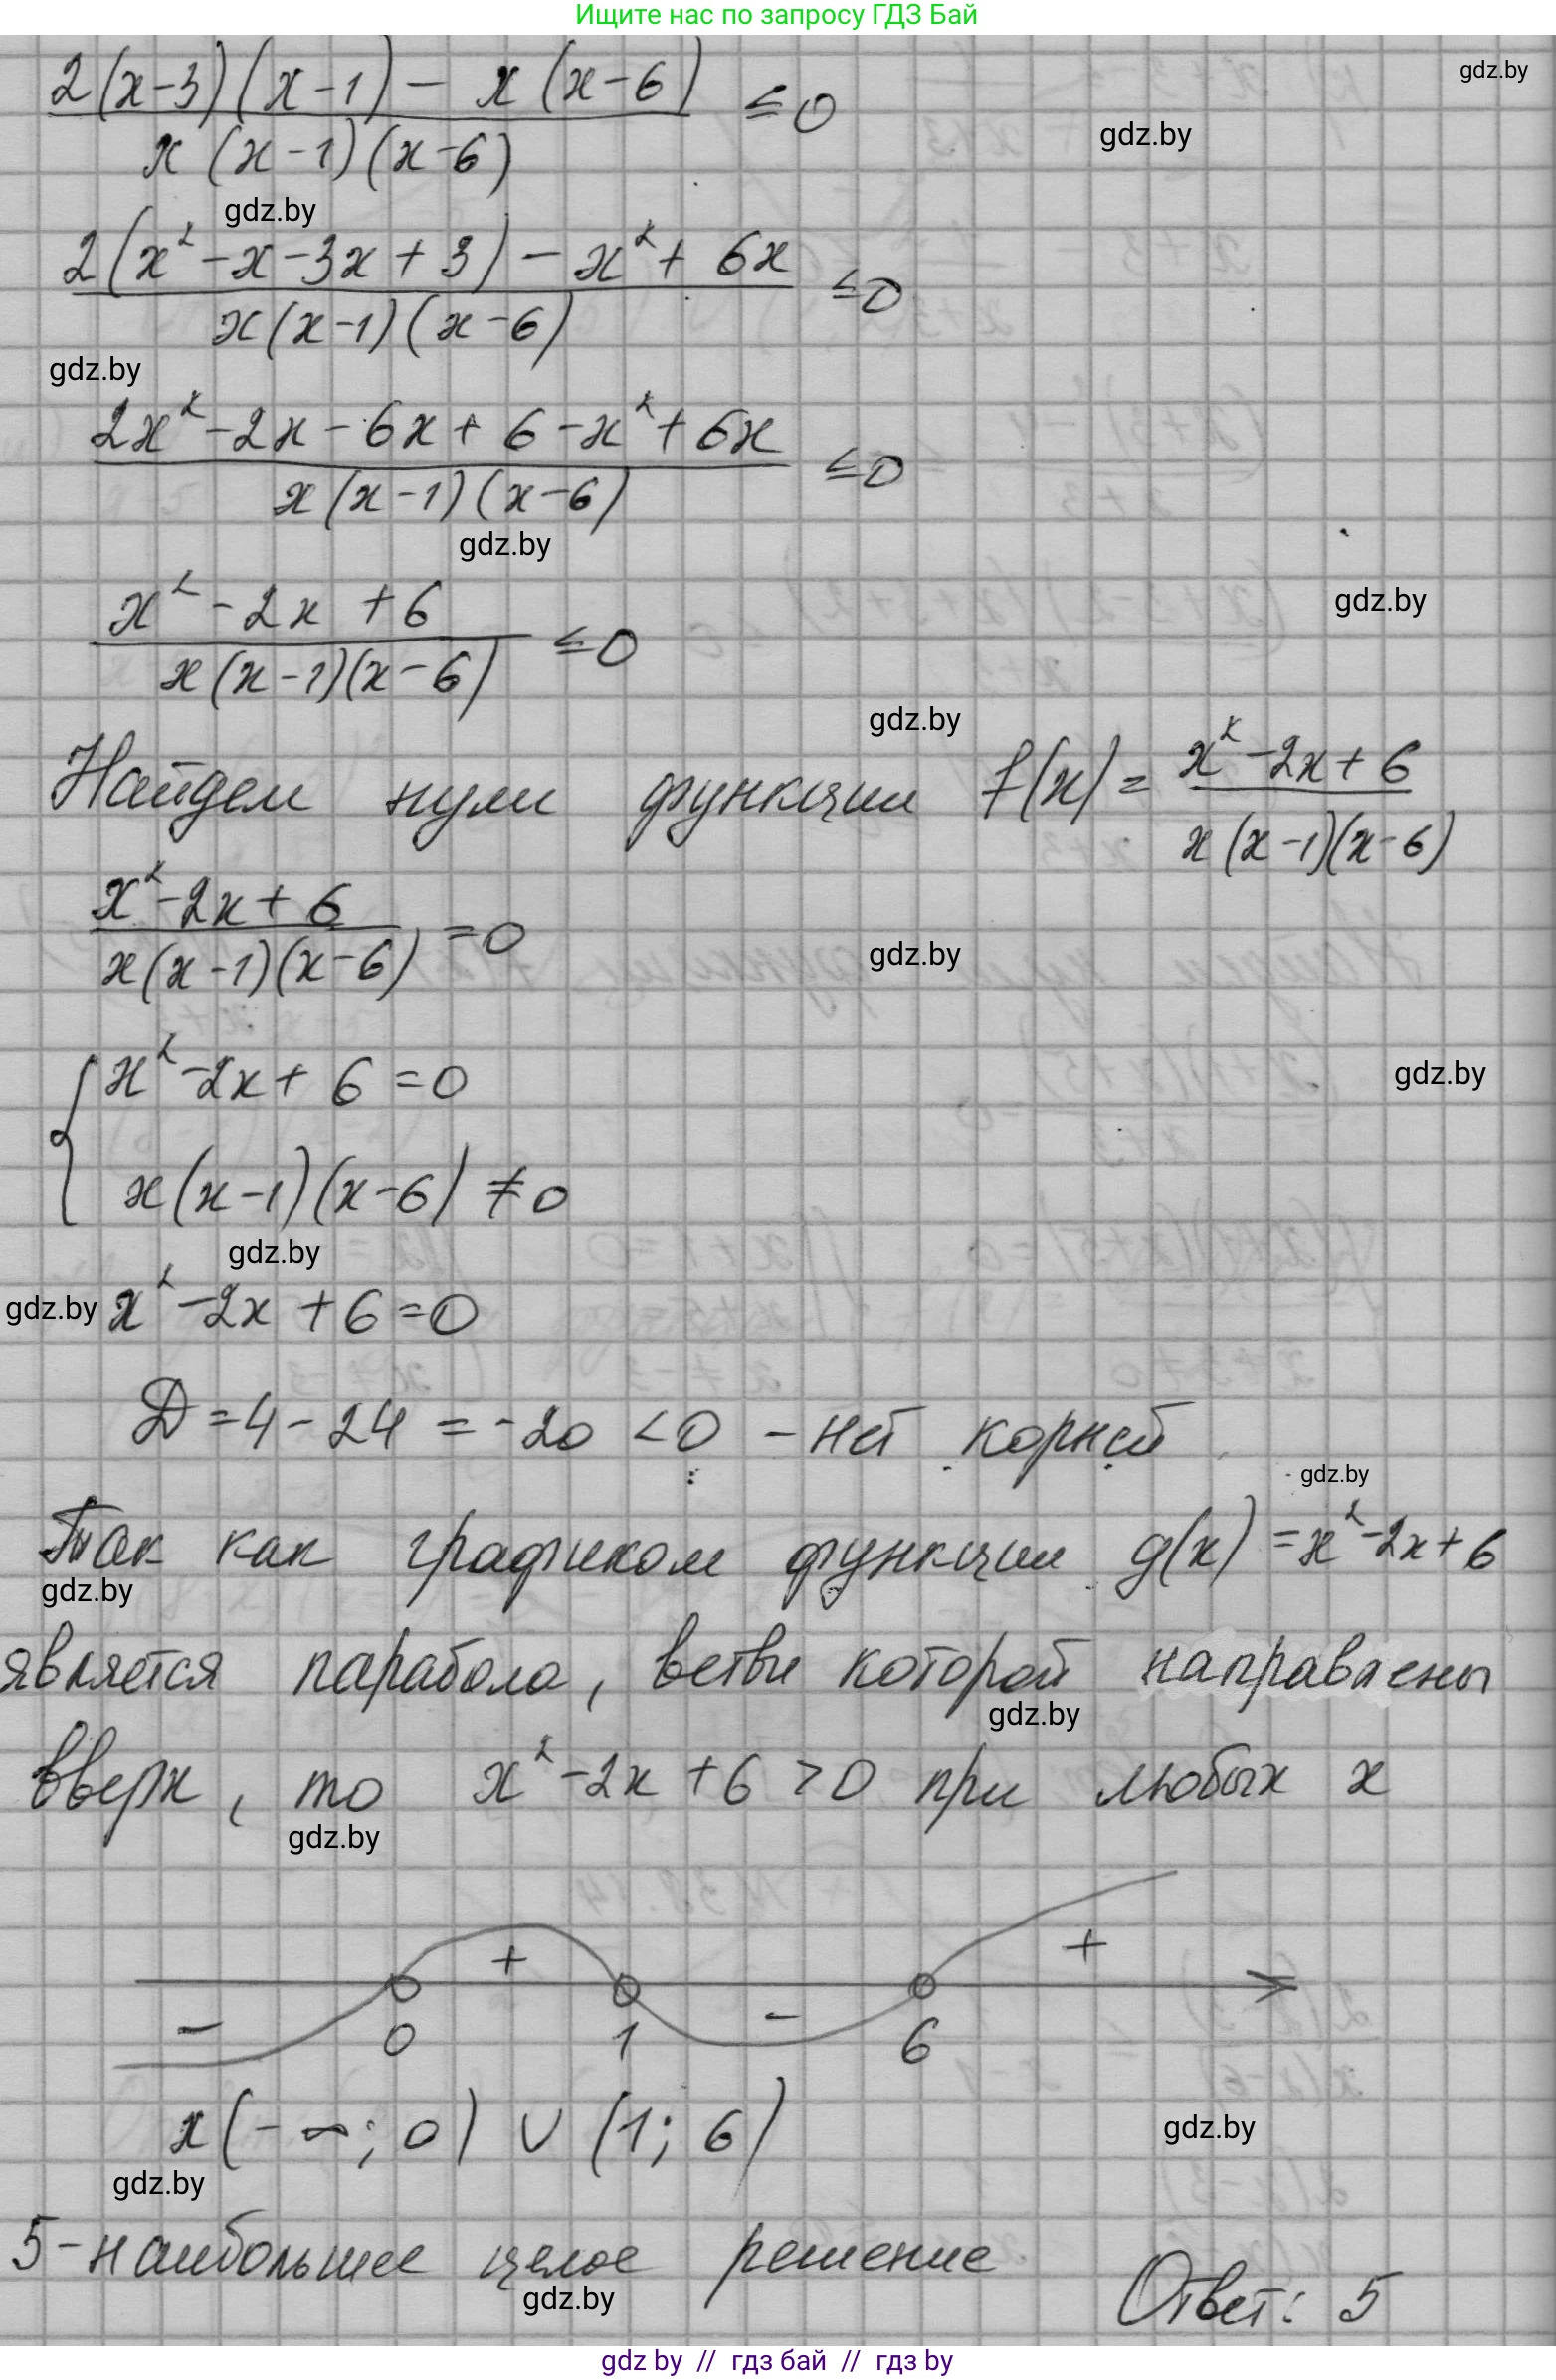 Ищите нас по запросу ГДЗ Бай
gdz.by
2(x-3)(x-1) - x(x-6)
x(x-1)(x-6)
≤0
gdz.by
gdz.by
2(x²-x-3x+3)-x²+6x
x(x-1)(x-6)
≤0
gdz.by
2x²-2x-6x+6-x²+6x
x(x-1)(x-6)
≤0
gdz.by
x²-2x+6
x(x-1)(x-6)
≤0
gdz.by
gdz.by
Найдем нули функции f(x)= x²-2x+6
x(x-1)(x-6)
x²-2x+6
x(x-1)(x-6)
=0
gdz.by
{ x²-2x+6=0
x(x-1)(x-6)≠0
gdz.by
gdz.by
gdz.by x²-2x+6=0
Д=4-24=-20<0 - нет корней
gdz.by
Так как графиком функции g(x)=x²-2x+6
gdz.by
является парабола, ветви которой направлены
gdz.by
вверх, то x²-2x+6>0 при любых x
gdz.by
- + - +
0 1 6
x(-∞;0) ∪ (1;6)
gdz.by
gdz.by
5-наибольшее целое решение
gdz.by
Ответ: 5
gdz by // гдз бай // гдз by